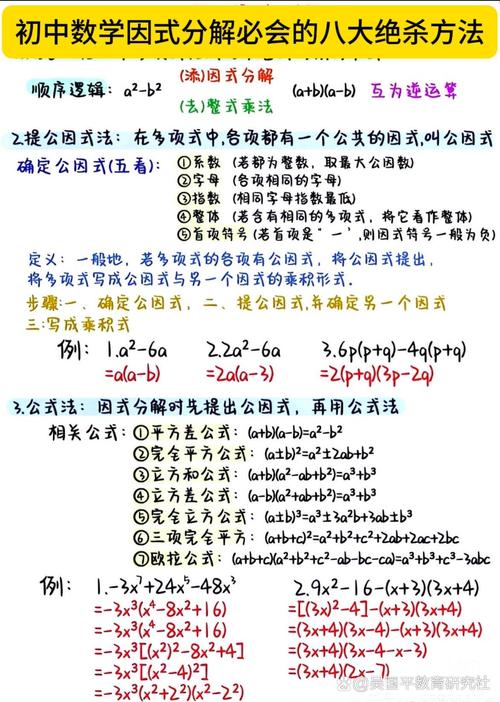 初中数学因式分解必会的八大绝杀方法
(添)因式分解
顺序逻辑: a²-b² (a+b)(a-b) 互为逆运算
(去)整式乘法
2.提公因式法: 在多项式中,各项都有一个公共的因式,叫公因式
确定公因式(五看): ①系数 (若都为整数, 取最大公因数)
②字母 (各项相同的字母)
③指数 (相同字母指数最低)
④整体 (若含有相同的多项式, 将它看作整体)
⑤首项符号 (若首项是"-",则因式符号一般为负)
定义: 一般地, 若多项式的各项有公因式, 将公因式提出,
将多项式写成公因式与另一个因式的乘积形式.
步骤:一、确定公因式, 二、提公因式,并确定另一个因式
三:写成乘积式
例: 1.a²-6a 2.2a²-6a 3.6p(p+q)-4q(p+q)
=a(a-b) =2a(a-3) =2(p+q)(3p-2q)
3.公式法: 因式分解时先提出公因式, 再用公式法
相关公式: ①平方差公式: (a+b)(a-b)=a²-b²
②完全平方公式: (a±b)²=a²±2ab+b²
③立方和公式: (a+b)(a²-ab+b²)=a³+b³
④立方差公式: (a-b)(a²+ab+b²)=a³+b³
⑤完全立方公式: (a±b)³=a³±3a²b+3ab±b³
⑥三项完全平方: (a+b+c)²=a²+b²+c²+2ab+2ac+2bc
⑦欧拉公式: (a+b+c)(a²+b²+c²-ab-bc-ca)=a³+b³+c³-3abc
例: 1.-3x⁷+24x⁵-48x³ 2.9x²-16-(x+3)(3x+4)
=-3x³(x⁴-8x²+16) =[(3x)²-4]-(x+3)(3x+4)
=-3x³(x⁴-8x²+16) =(3x+4)(3x-4)-(x+3)(3x+4)
=-3x³[(x²)²-8x²+4] =(3x+4)(3x-4-x-3)
=-3x³(x²-4)² =(3x+4)(2x-7)
=-3x³(x²+2²)(x²-2²)
昊国平教育研究社